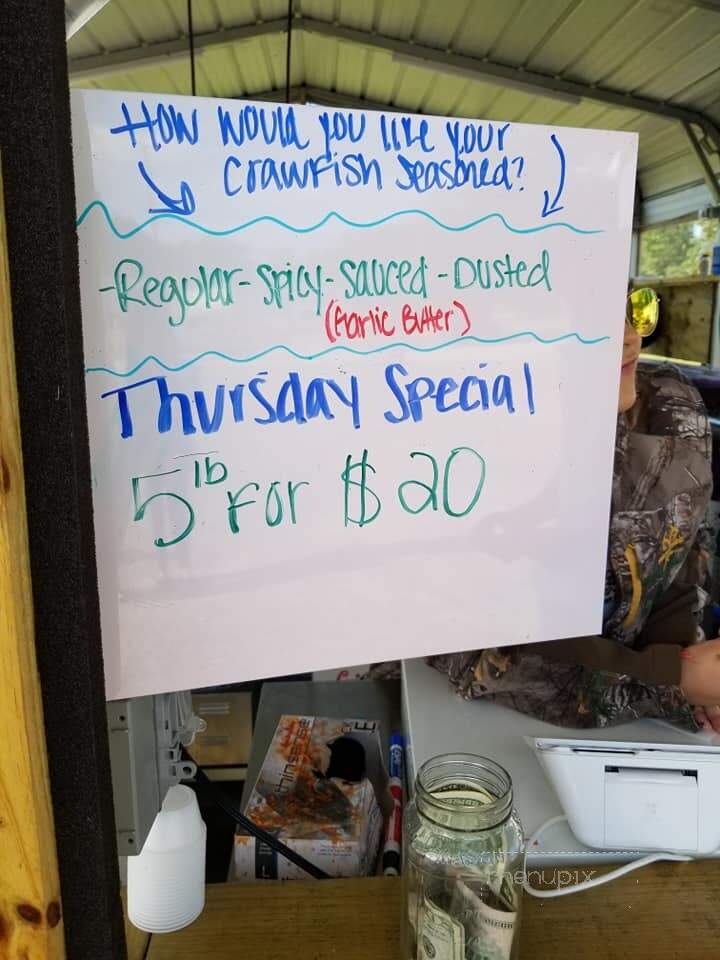 How would you like your
crawfish seasoned?
-Regular-Spicy-Sauced-Dusted
(Garlic Butter)
Thursday Special
5lb For $20
menupix